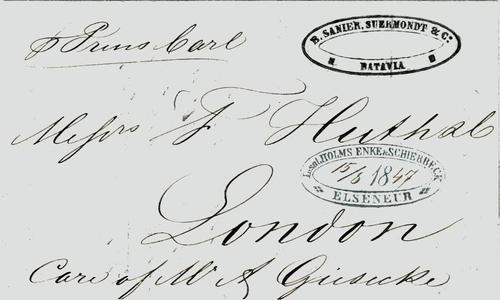 p Prins Carl
B. SANIER, SUERMONDT & Co.
BATAVIA
Messrs F Huth & C
HOLMS ENKE & SCHIERBECK
15/8 1847
ELSENEUR
London
Care of Mr A Giesecke